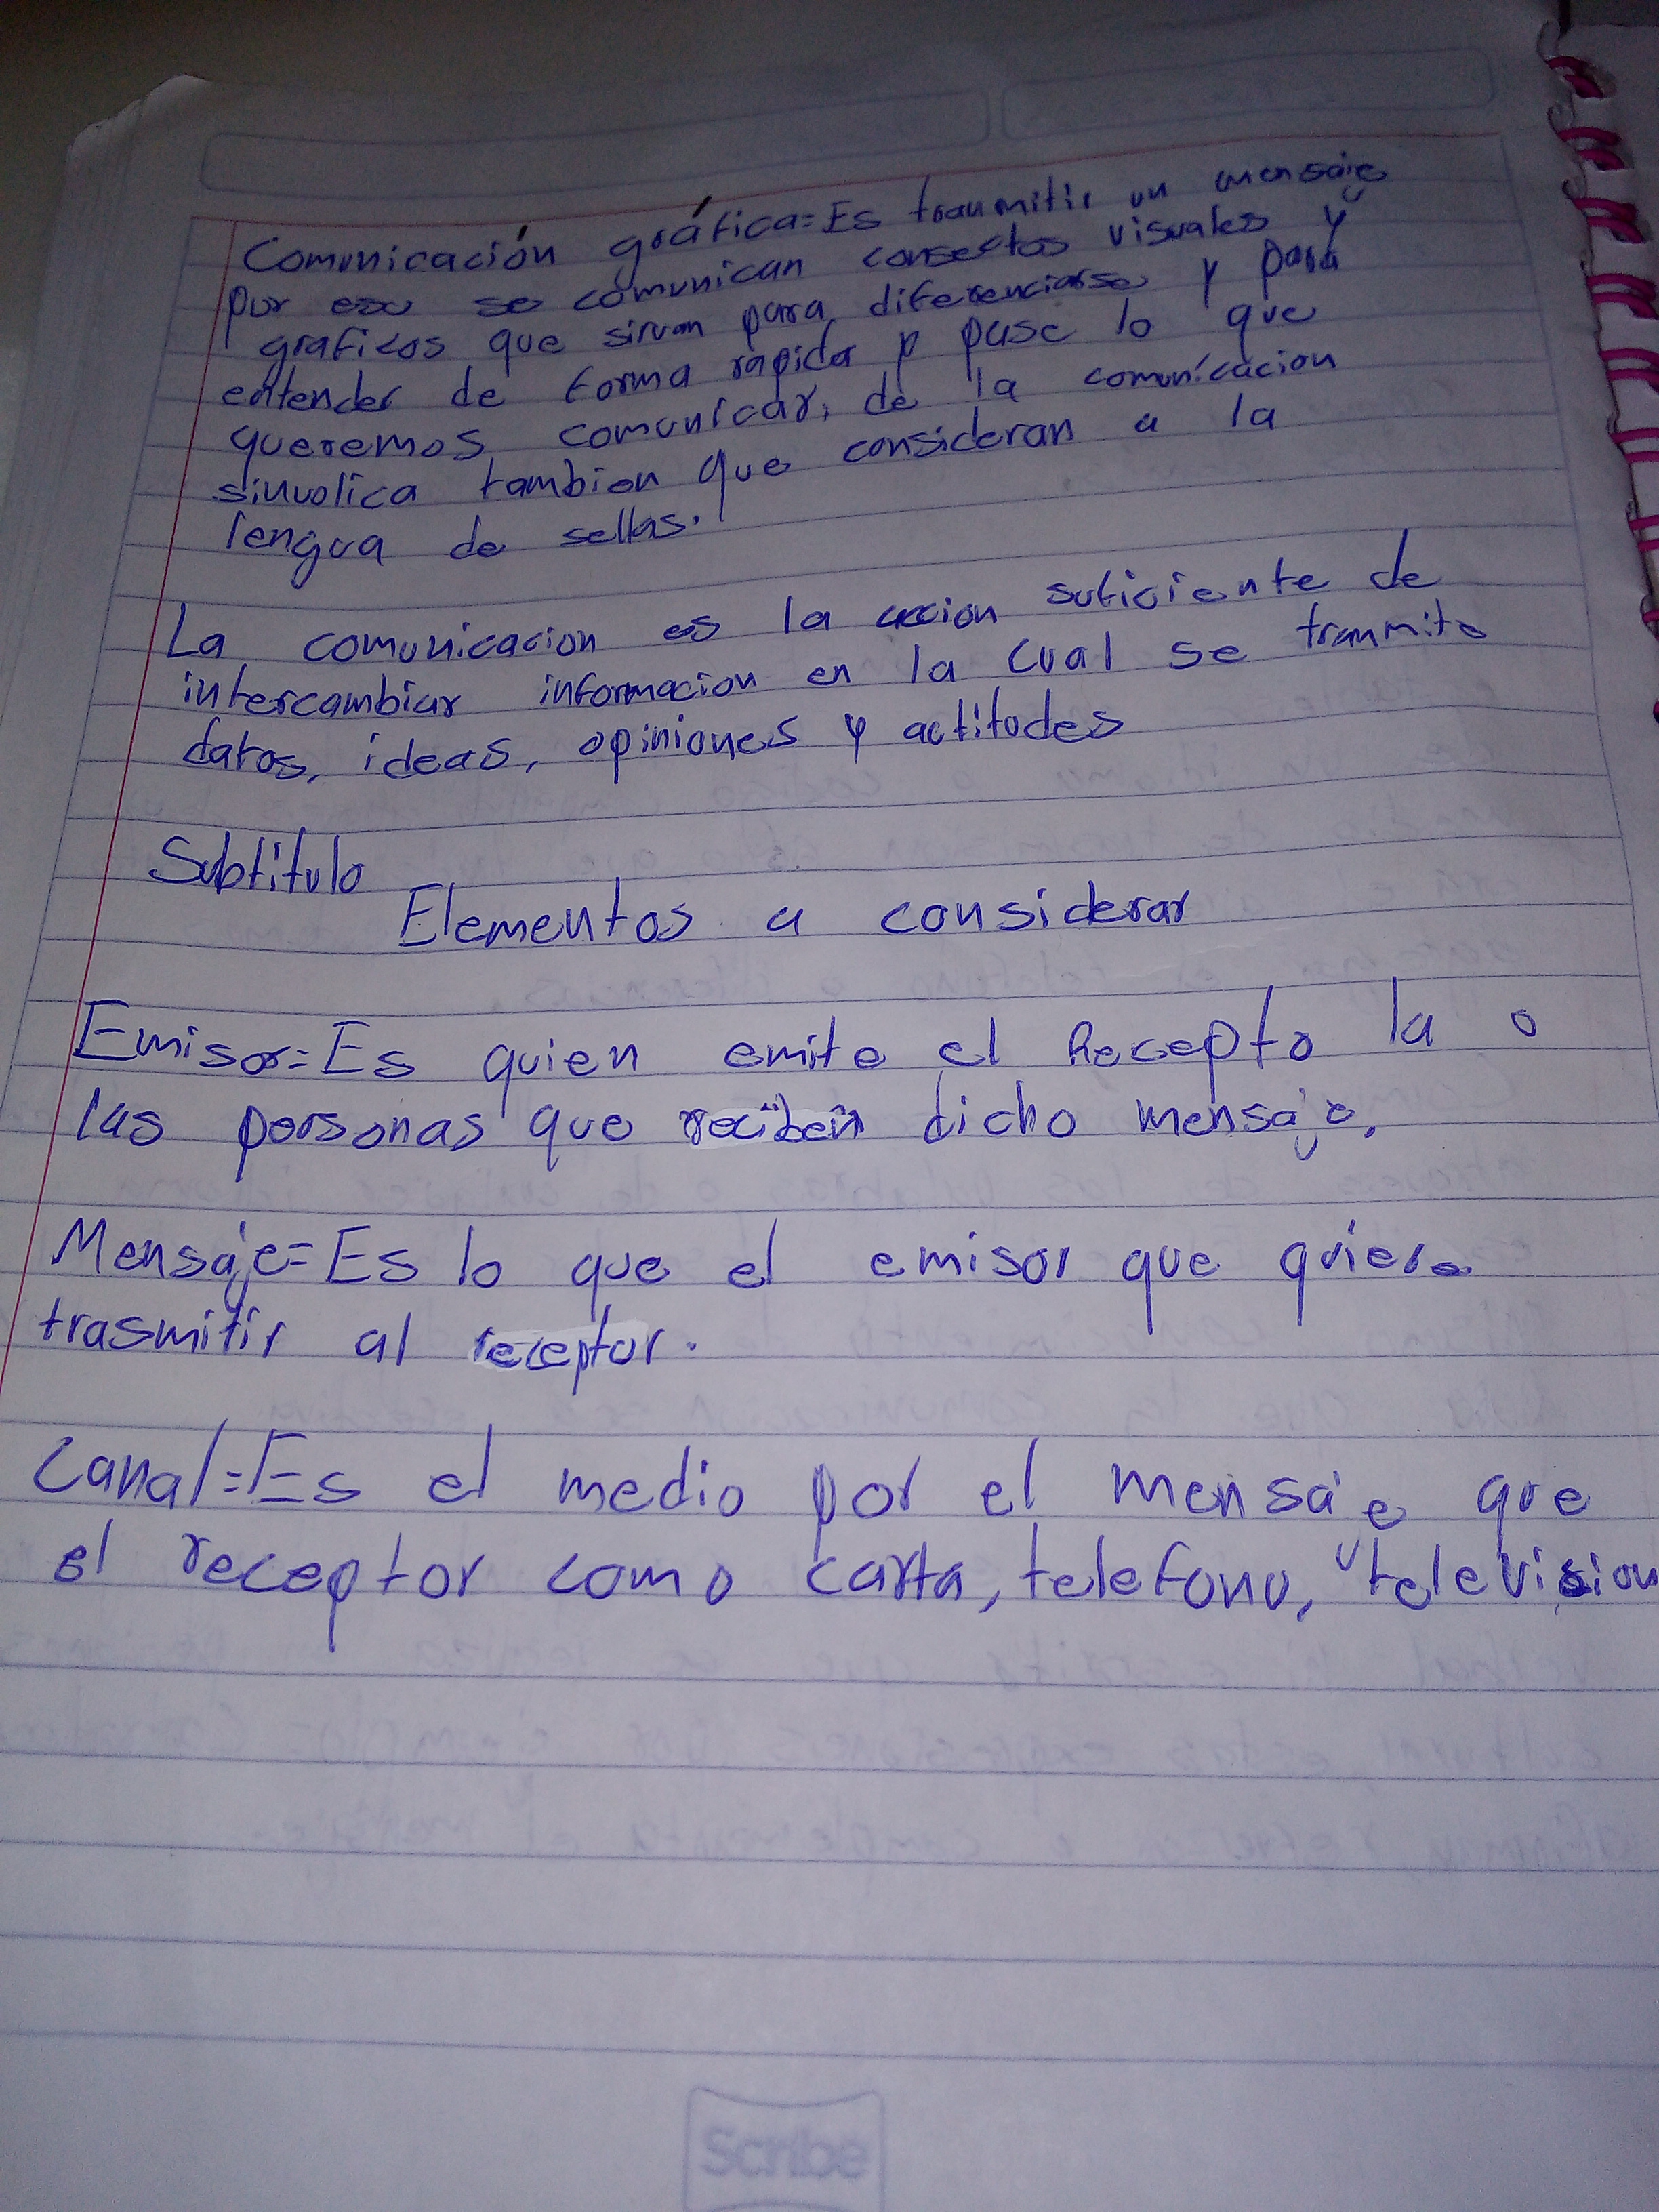 Comunicación gráfica=Es tranmitir un mensaje
por eso se comunican consectos visuales y
graficos que sirvan para diferenciarse y para
entender de forma rápida p pase lo que
queremos comunicar, de la comunícacion
sinvolica tambien que consideran a la
lengua de sellas.
La comunicacion es la accion suficiente de
intercambiar informacion en la cual se tranmite
datos, ideas, opiniones y actitudes
Subtitulo
Elementos a considerar
Emisor=Es quien emite el Recepto la o
las personas que reciben dicho mensaje.
Mensaje=Es lo que el emisor que quiere
trasmitir al receptor.
Canal=Es el medio por el mensaje que
el receptor como carta, telefono, television
Scribe